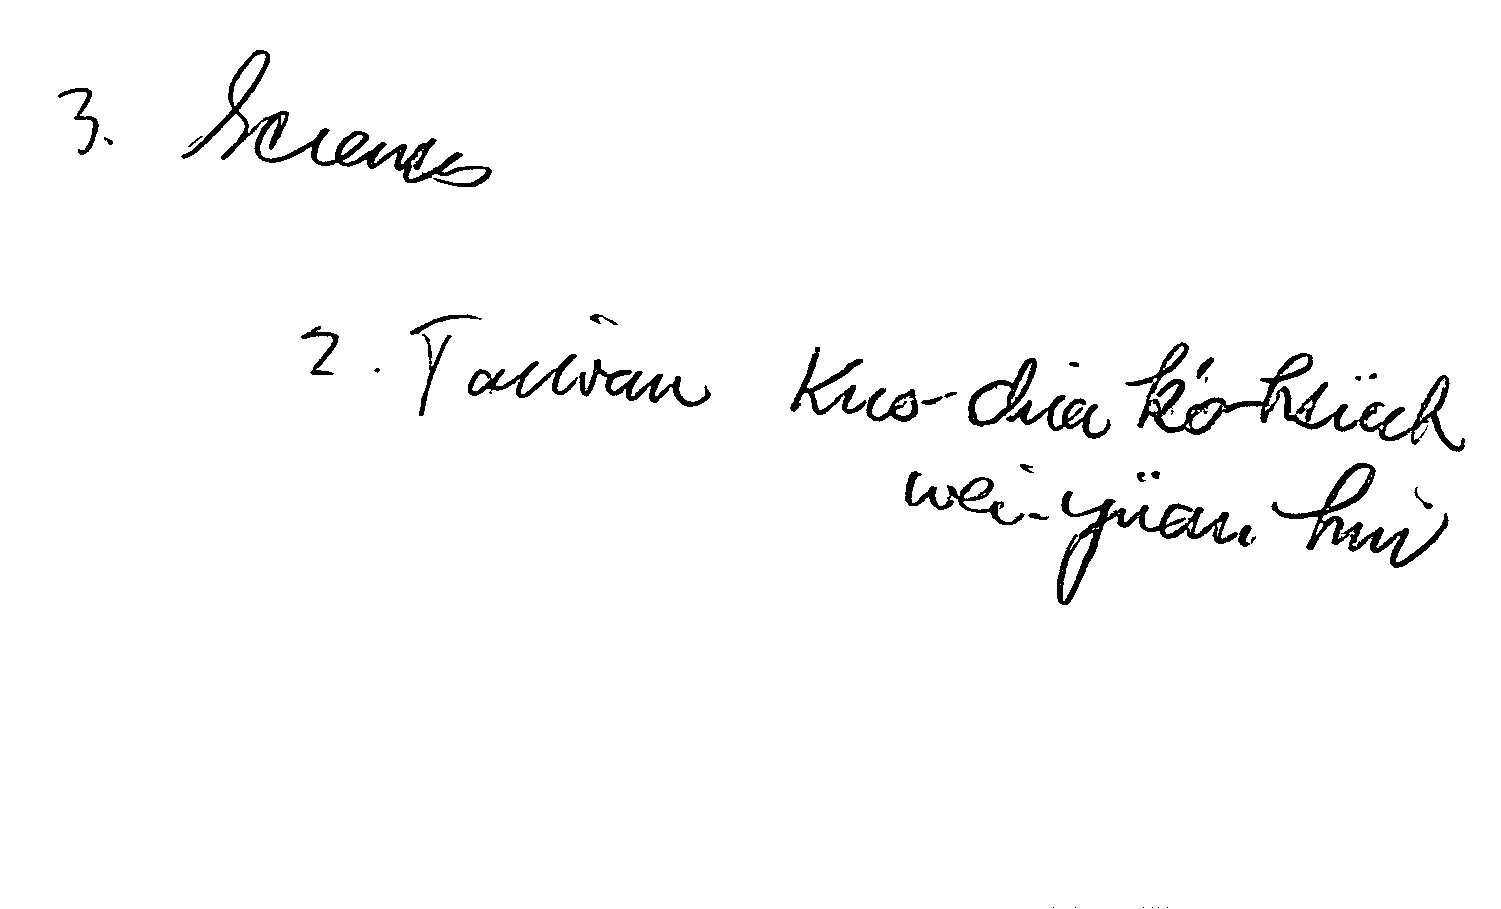 3. Science
2. Taiwan Kuo-chia k'o-hsüeh
wei-yüan hui